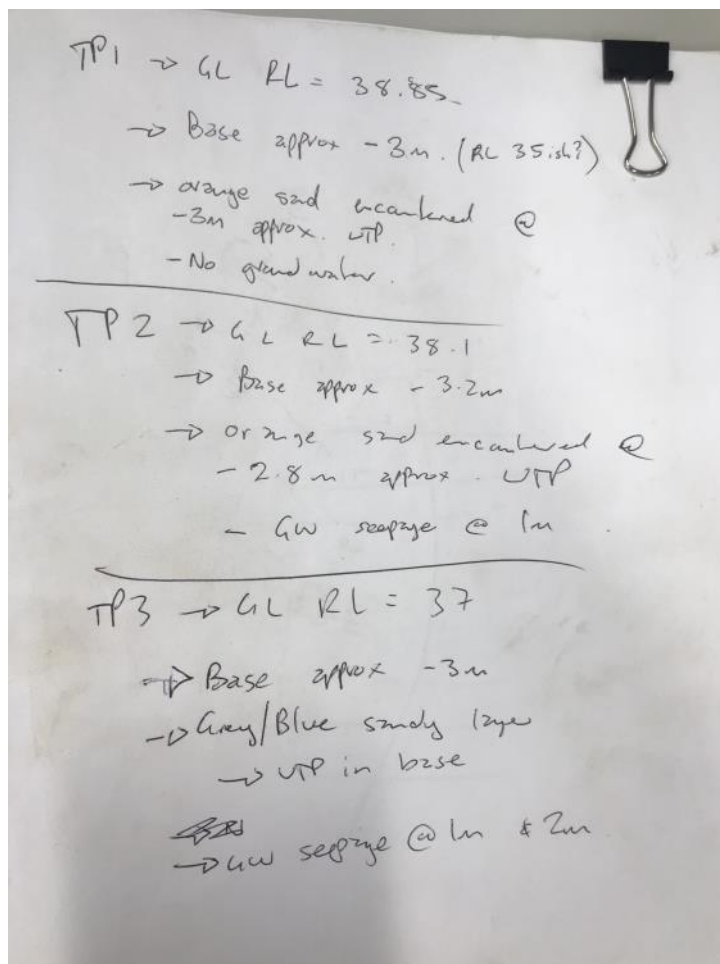 TP1 → GL RL = 38.85
→ Base approx - 3m. (RL 35ish?)
→ orange sand encountered @
-3m approx. UTP.
- No groundwater.
TP2 → GL RL = 38.1
→ Base approx - 3.2m
→ orange sand encountered @
- 2.8m approx. UTP
- GW seepage @ 1m
TP3 → GL RL = 37
→ Base approx -3m
→ Grey/Blue sandy layer
→ UTP in base
→ GW seepage @ 1m & 2m